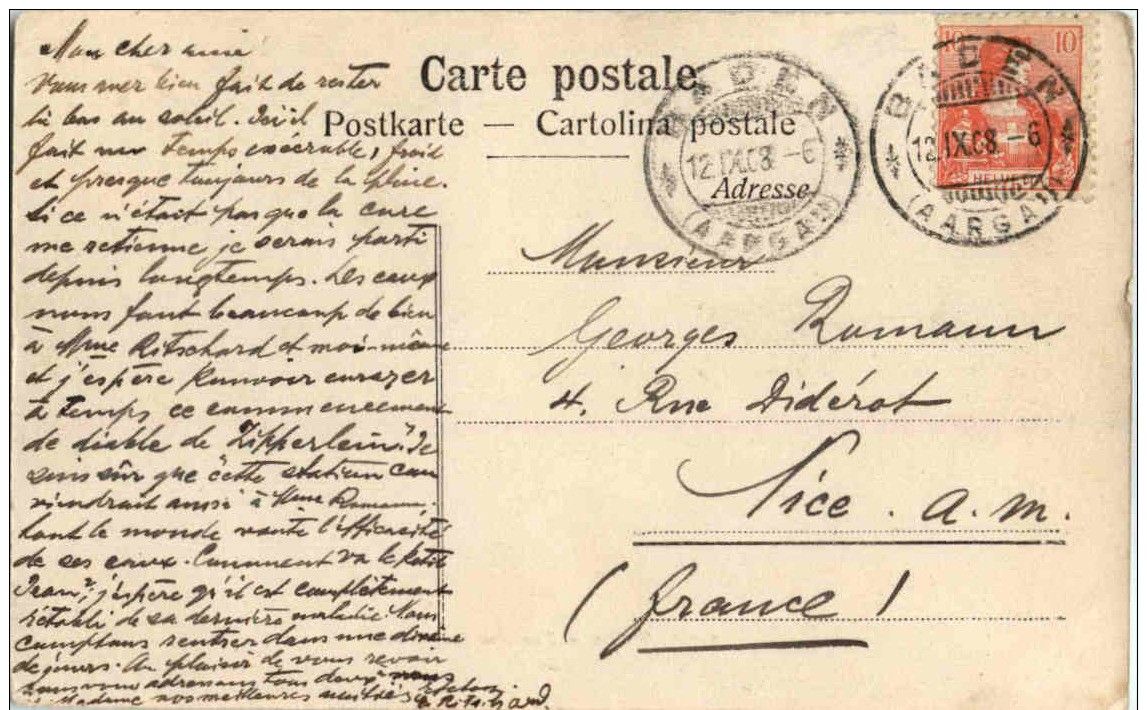 Mon cher ami
Vous avez bien fait de rester
là bas au soleil. Ici il
fait un temps exécrable, froid
et presque toujours de la pluie.
Si ce n'était pas que la cure
me retienne je serais parti
depuis longtemps. Les eaux
nous font beaucoup de bien
à Mme Ritschard et moi-même
et j'espère pouvoir enrayer
à temps ce commencement
de diable de "Zipperlein". Je
suis sûr que cette station con
viendrait aussi à Mme Romann,
tout le monde vante l'efficacité
de ses eaux. Comment va le petit
Jean? j'espère qu'il est complètement
rétabli de sa dernière maladie. Nous
comptons rentrer dans une dizaine
de jours. Au plaisir de vous revoir
nous vous adressons tous deux
Madame nos meilleures amitiés
Ritschard
Carte postale
Postkarte — Cartolina postale
Adresse
BADEN
12.IX.08.-6
(AARGAU)
BADEN
12.IX.08.-6
(AARGAU)
10 10
HELVETIA
Monsieur
Georges Romann
4. Rue Didérot
Nice. a. m.
(france)